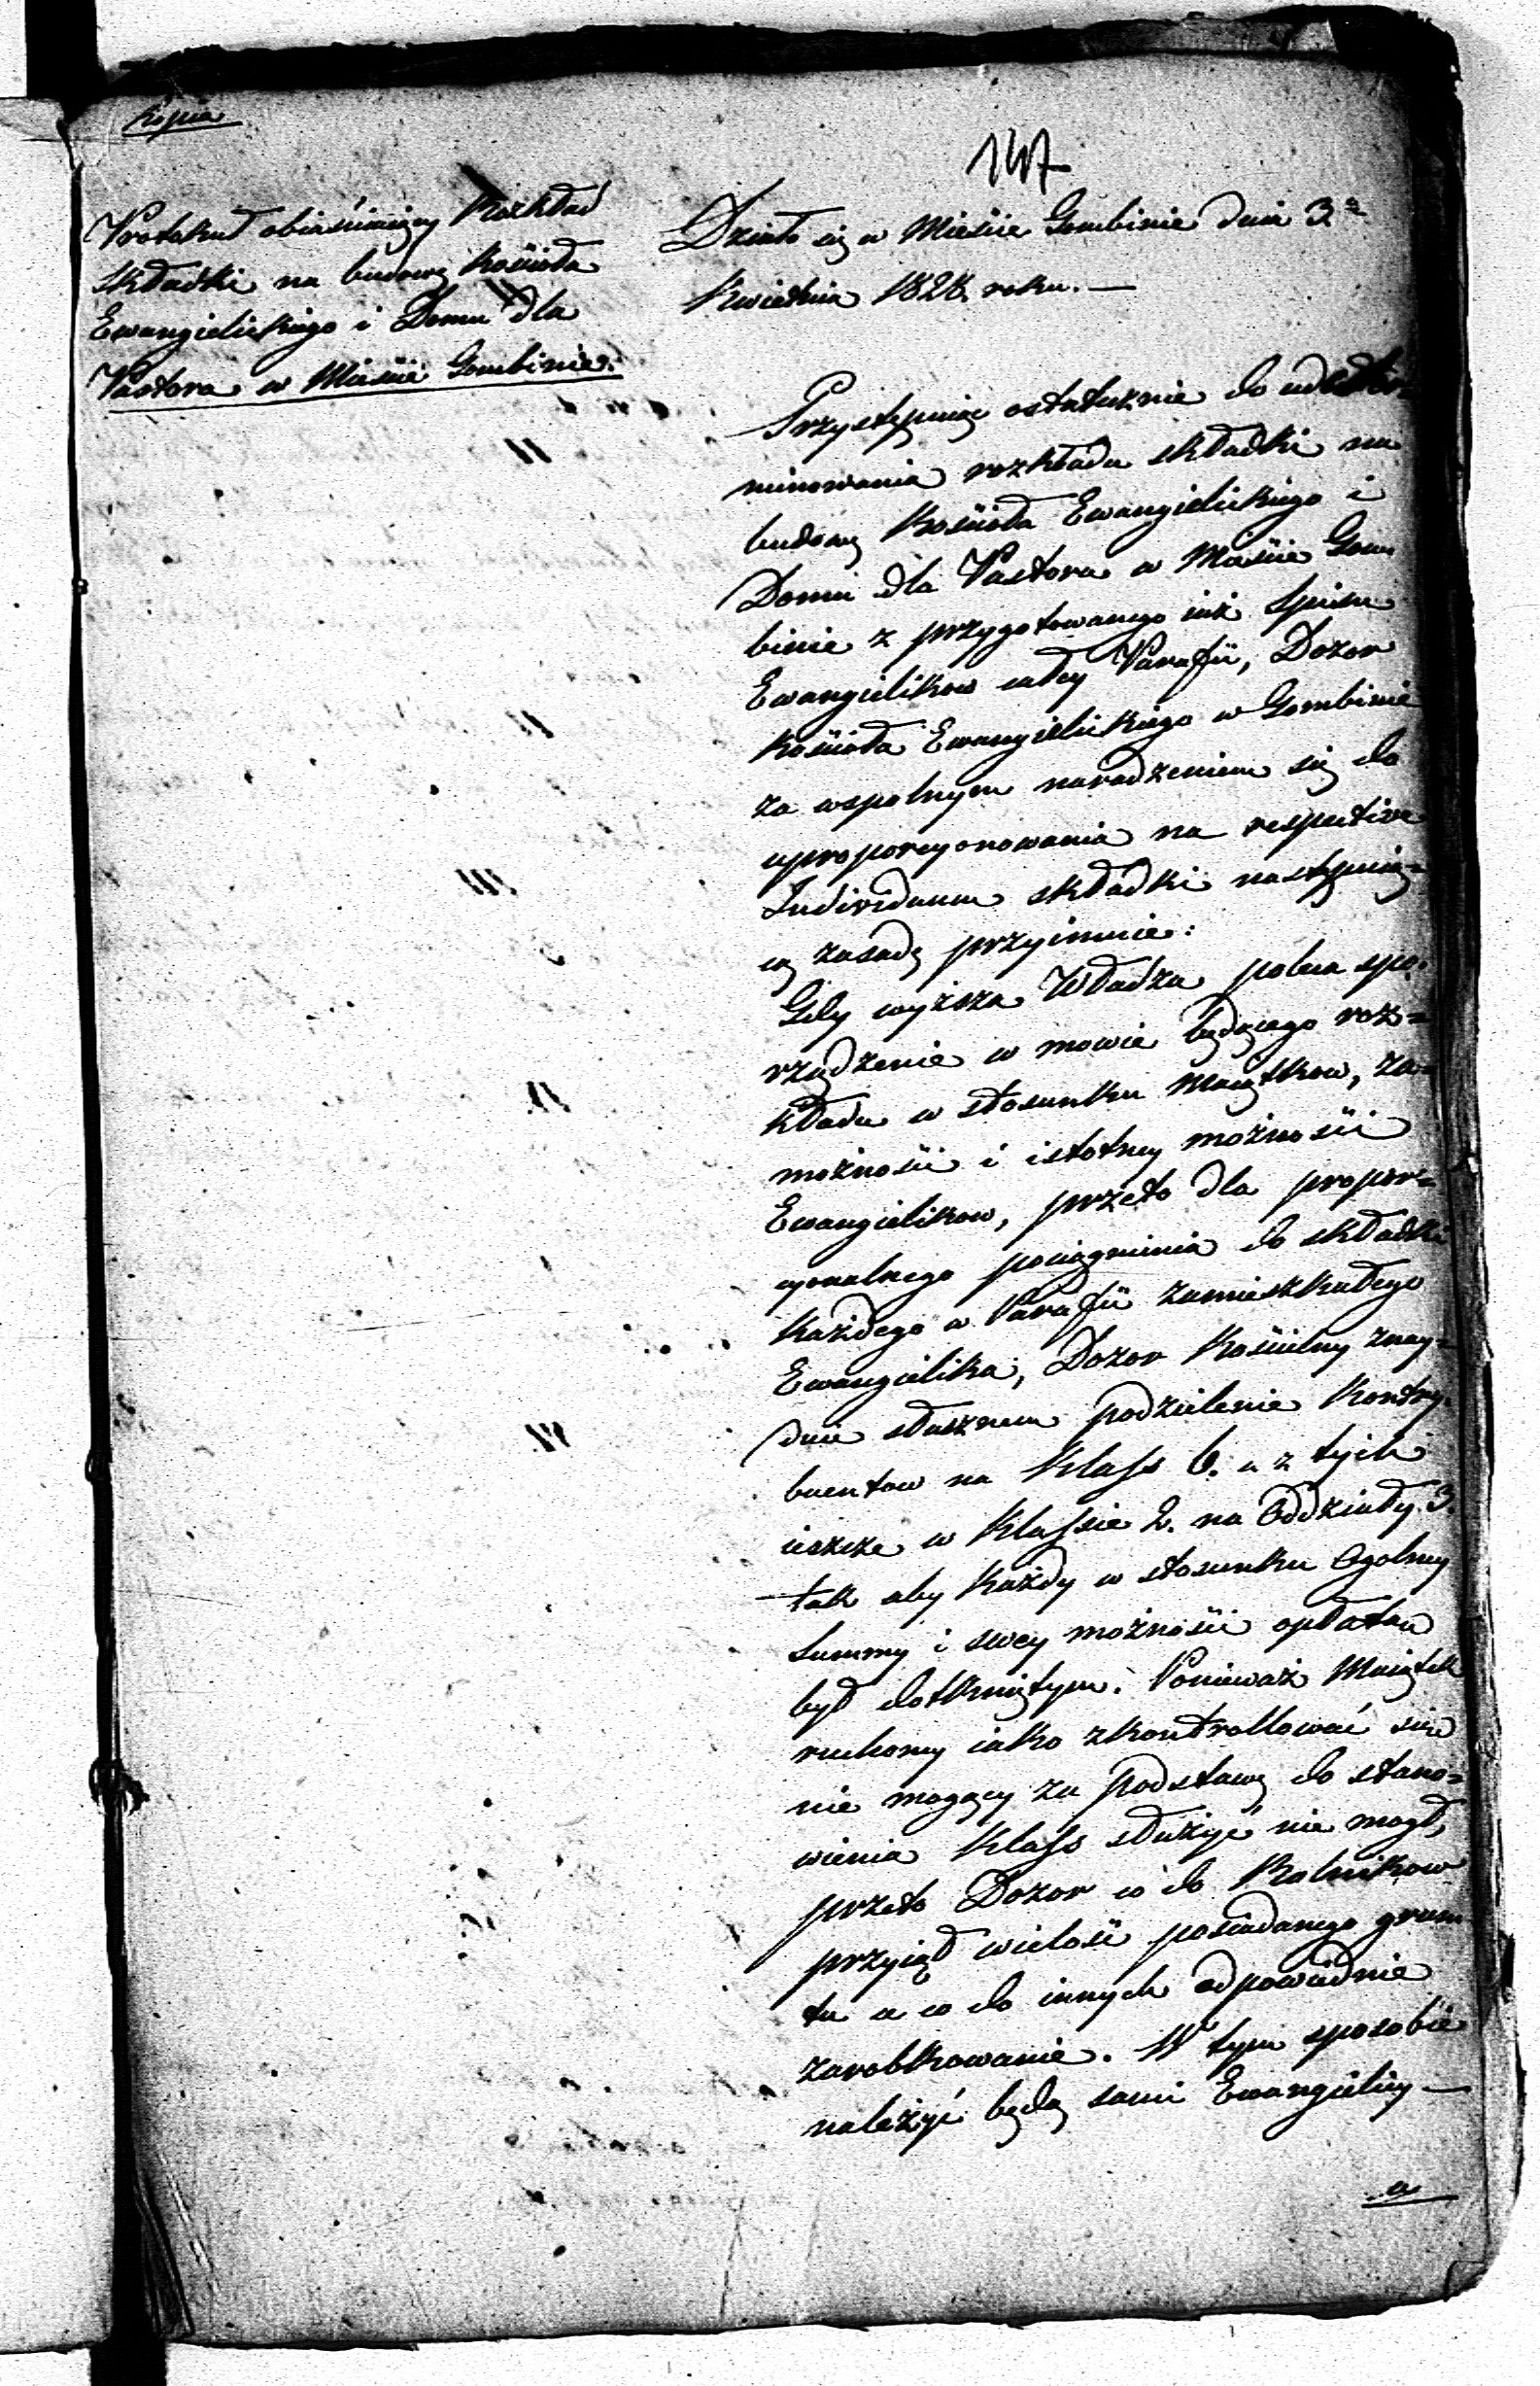 Kopia
147
Protokuł obiaśniaiący Rozkład
składki na budowę Kościoła
Ewangielickiego i Domu dla
Pastora w Mieście Gombinie.
Działo się w Mieście Gombinie dnia 3º
Kwietnia 1828 roku. —
Przystępuiąc ostatecznie do udeter-
minowania rozkładu składki na
budowę Kościoła Ewangielickiego i
Domu dla Pastora w Mieście Gom
binie z przygotowanego iuż Spisu
Ewangielikow całey Parafii, Dozor
Kościoła Ewangielickiego w Gombinie
za wspolnym naradzeniem się do
uproporcyonowania na respective
Individuum składki następuią=
cą zasadę przyimuie:
Gdy wyższa Władza poleca spo-
rządzenie w mowie będącego roz=
kładu w stosunku Maiątkow, za=
możności i istotney możności
Ewangielikow, przeto dla propor=
cyonalnego pociągnienia do składki
każdego w Parafii zamieszkałego
Ewangielika, Dozor Kościelny znay=
duie słusznem podzielenie Kontry-
buentow na Klass 6. a z tych
ieszcze w Klassie 2. na Oddziały 3.
tak aby każdy w stosunku Ogolney
Summy i swey możności opłatą
był dotkniętym. Ponieważ Maiątek
ruchomy iako zkontrollować się
nie mogący za podstawę do stano=
wienia Klass służyć nie mogł,
przeto Dozor co do Rolnikow
przyiął wielość posiadanego grun
tu a co do innych odpowiednie
zarobkowanie. W tym sposobie
należyć będą sami Ewangielicy —
a